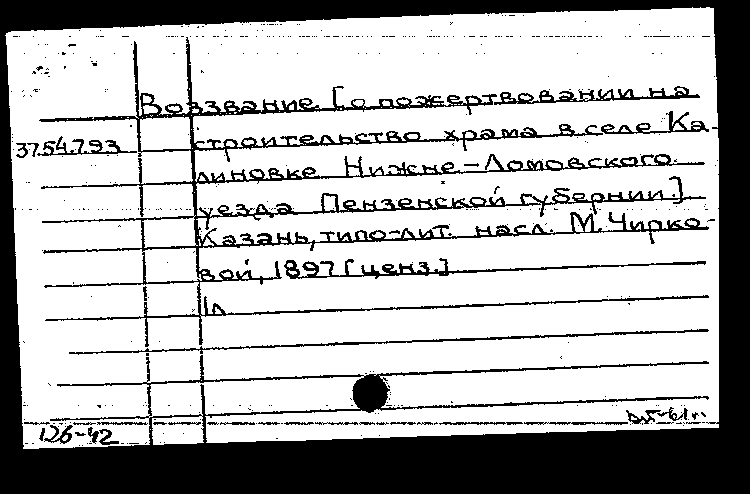 Воззвание [о пожертвовании на
37.54.7.93 строительство храма в селе Ка-
линовке Нижне-Ломовского
уезда Пензенской губернии]
Казань, типо-лит. насл. М. Чирко-
вой, 1897 [ценз.]
1л
126-42